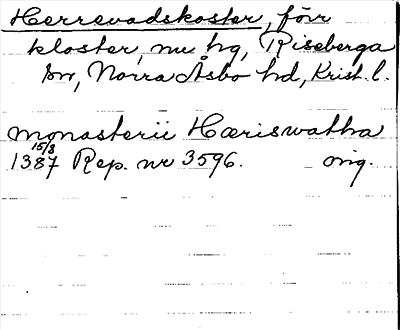 Herrevadskloster, förr
kloster, nu hg, Riseberga
sn, Norra Åsbo hd, Krist. l.
monasterii Hæriswatha
15/8
1387 Rep. nr 3596. orig.